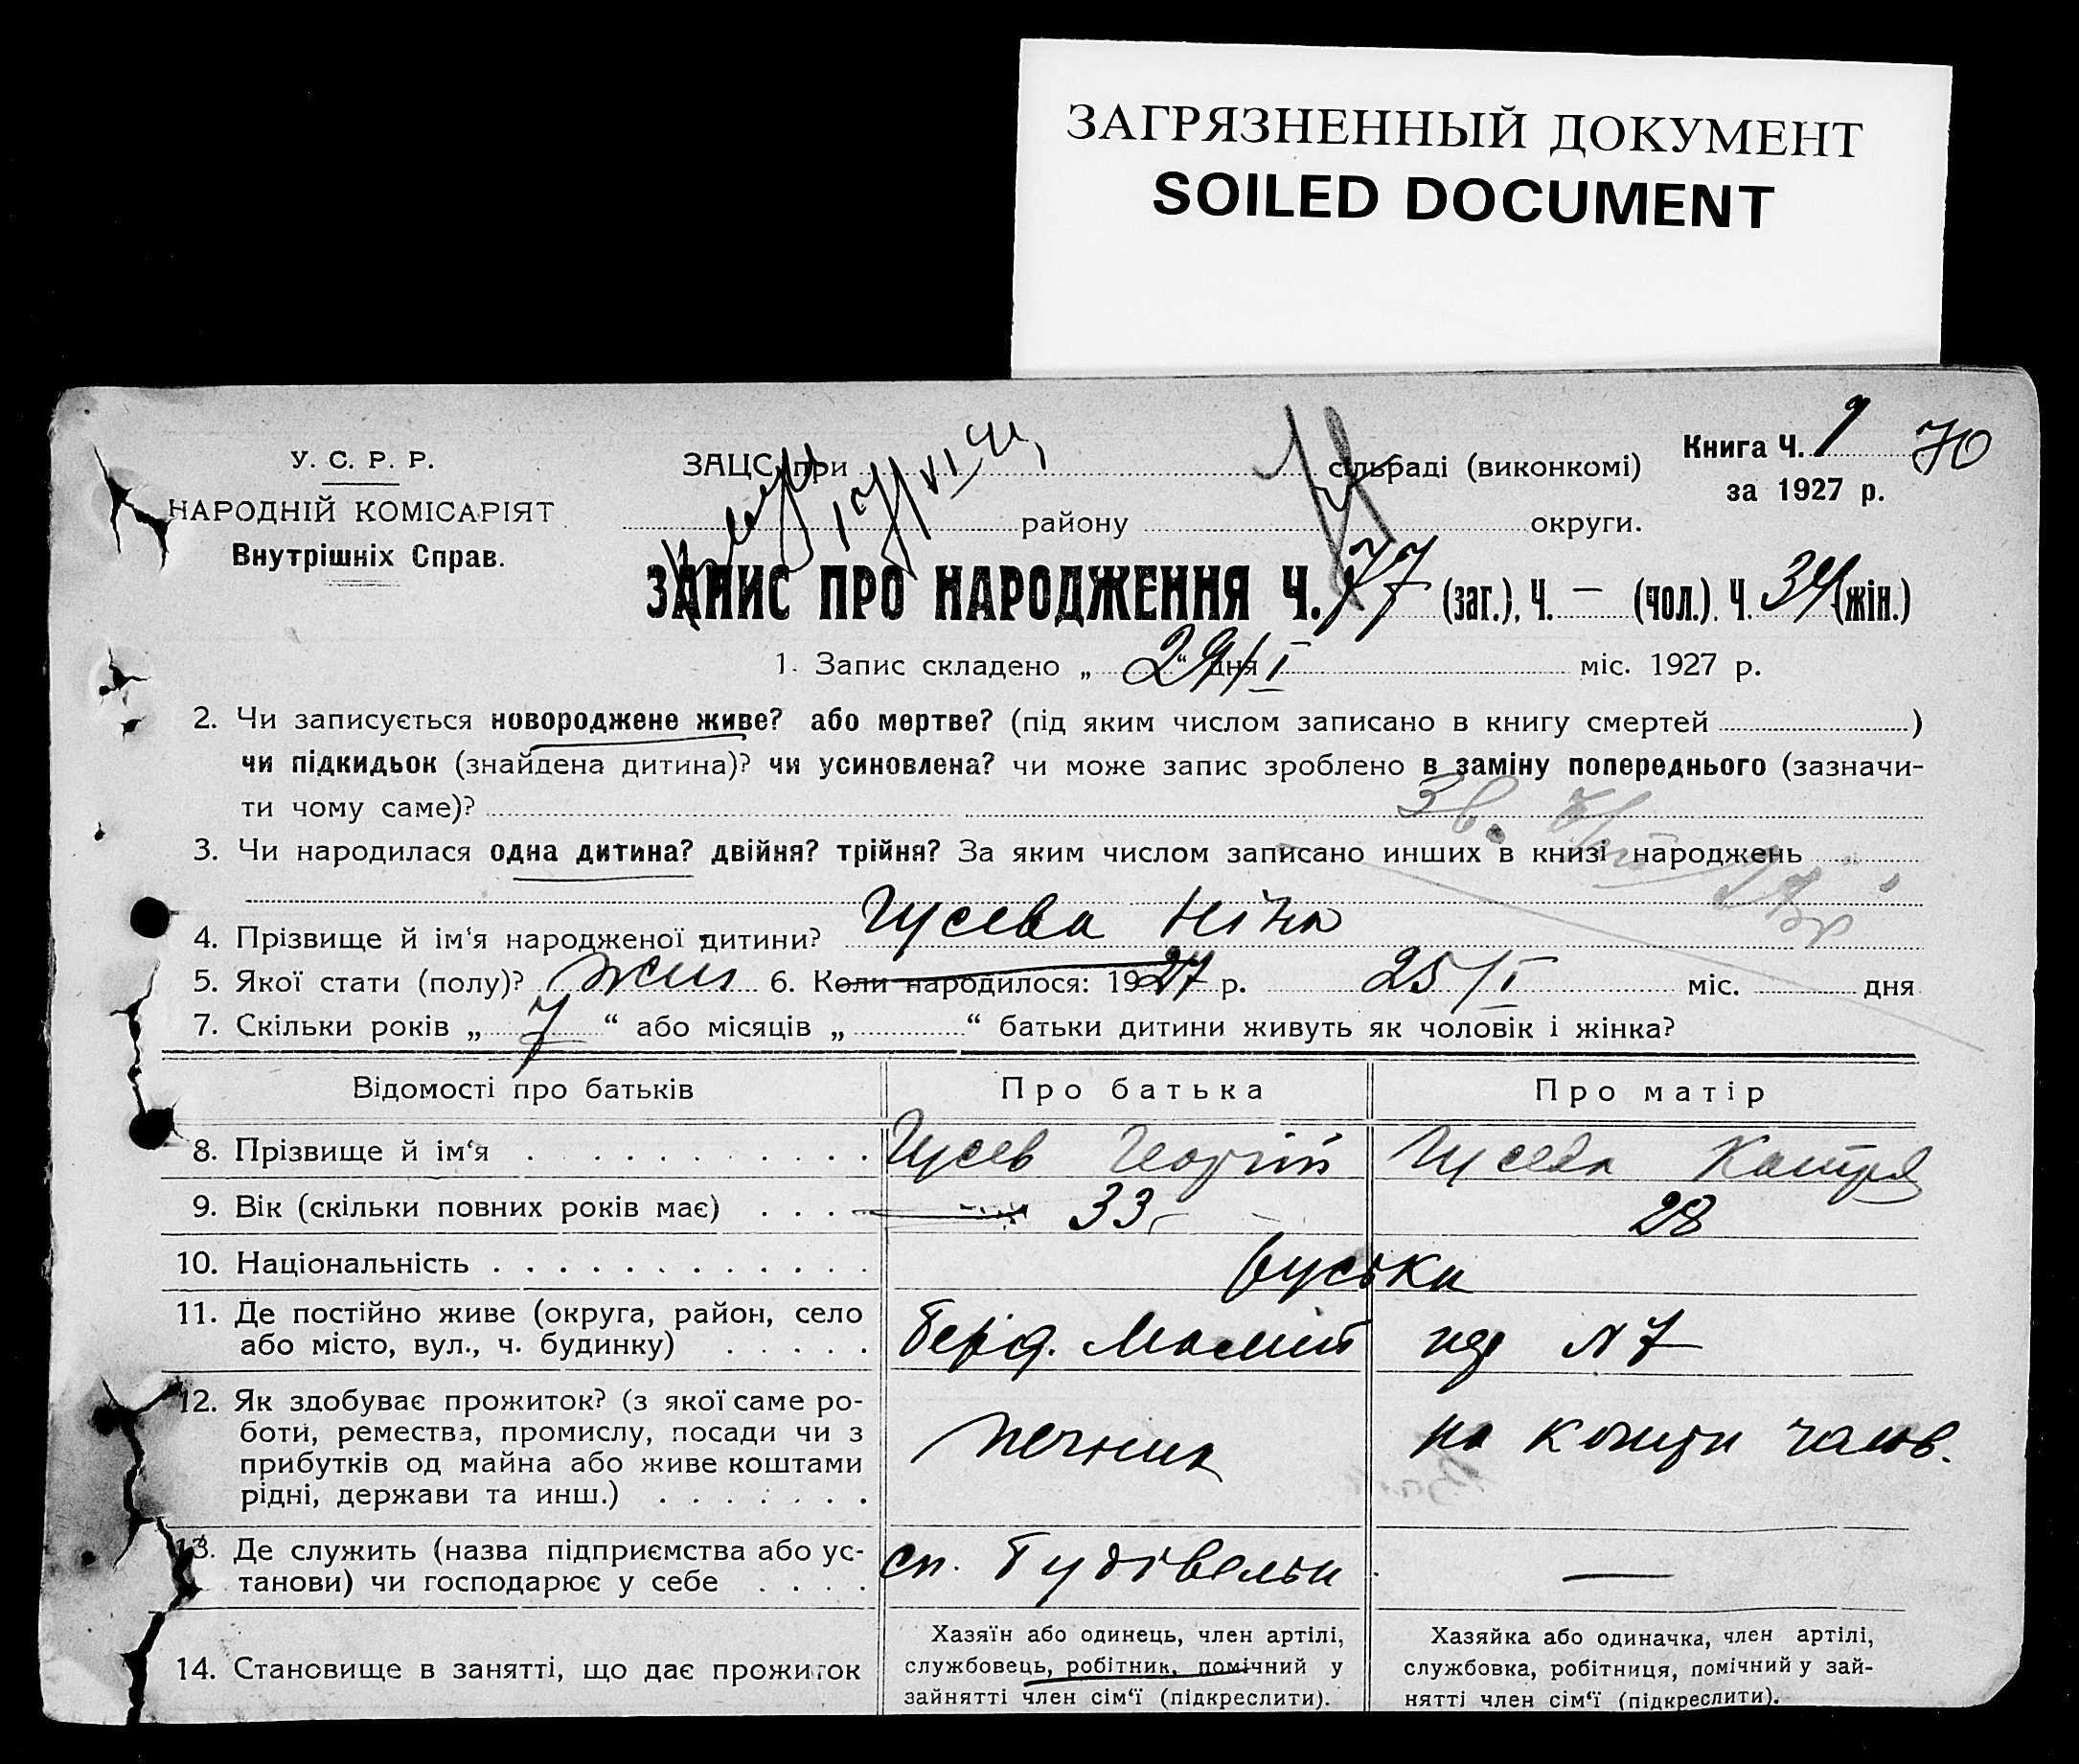 ЗАГРЯЗНЕННЫЙ ДОКУМЕНТ
SOILED DOCUMENT
У. С. Р. Р.
НАРОДНІЙ КОМІСАРІЯТ
Внутрішніх Справ.
ЗАЦС при сільраді (виконкомі)
району округи.
Книга Ч. 1 70
за 1927 р.
ЗАПИС ПРО НАРОДЖЕННЯ Ч. 77 (заг.), Ч. — (чол.). Ч. 34 (жін.)
1. Запис складено „ 29/I “ дня міс. 1927 р.
2. Чи записується новороджене живе? або мертве? (під яким числом записано в книгу смертей )
чи підкидьок (знайдена дитина)? чи усиновлена? чи може запис зроблено в заміну попереднього (зазначи-
ти чому саме)?
3. Чи народилася одна дитина? двійня? трійня? За яким числом записано инших в книзі народжень
4. Прізвище й ім‘я народженої дитини? Гусева Ніна
5. Якої стати (полу)? жін 6. Коли народилося: 1927 р. 25/I міс. дня
7. Скільки років „ 7 “ або місяців „ “ батьки дитини живуть як чоловік і жінка?
Відомості про батьків Про батька Про матір
8. Прізвище й ім‘я Гусев Георгій Гусева Катря
9. Вік (скільки повних років має) 33 28
10. Національність руські
11. Де постійно живе (округа, район, село
або місто, вул., ч. будинку) Берд. № 7
12. Як здобуває прожиток? (з якої саме ро-
боти, ремества, промислу, посади чи з
прибутків од майна або живе коштами
рідні, держави та инш.)
печник на кошти чолов.
13. Де служить (назва підприємства або ус-
танови) чи господарює у себе сп. Будівельн —
14. Становище в занятті, що дає прожиток
Хазяїн або одинець, член артілі,
службовець, робітник, помічний у
зайнятті член сім‘ї (підкреслити).
Хазяйка або одиначка, член артілі,
службовка, робітниця, помічний у зай-
нятті член сім‘ї (підкреслити).